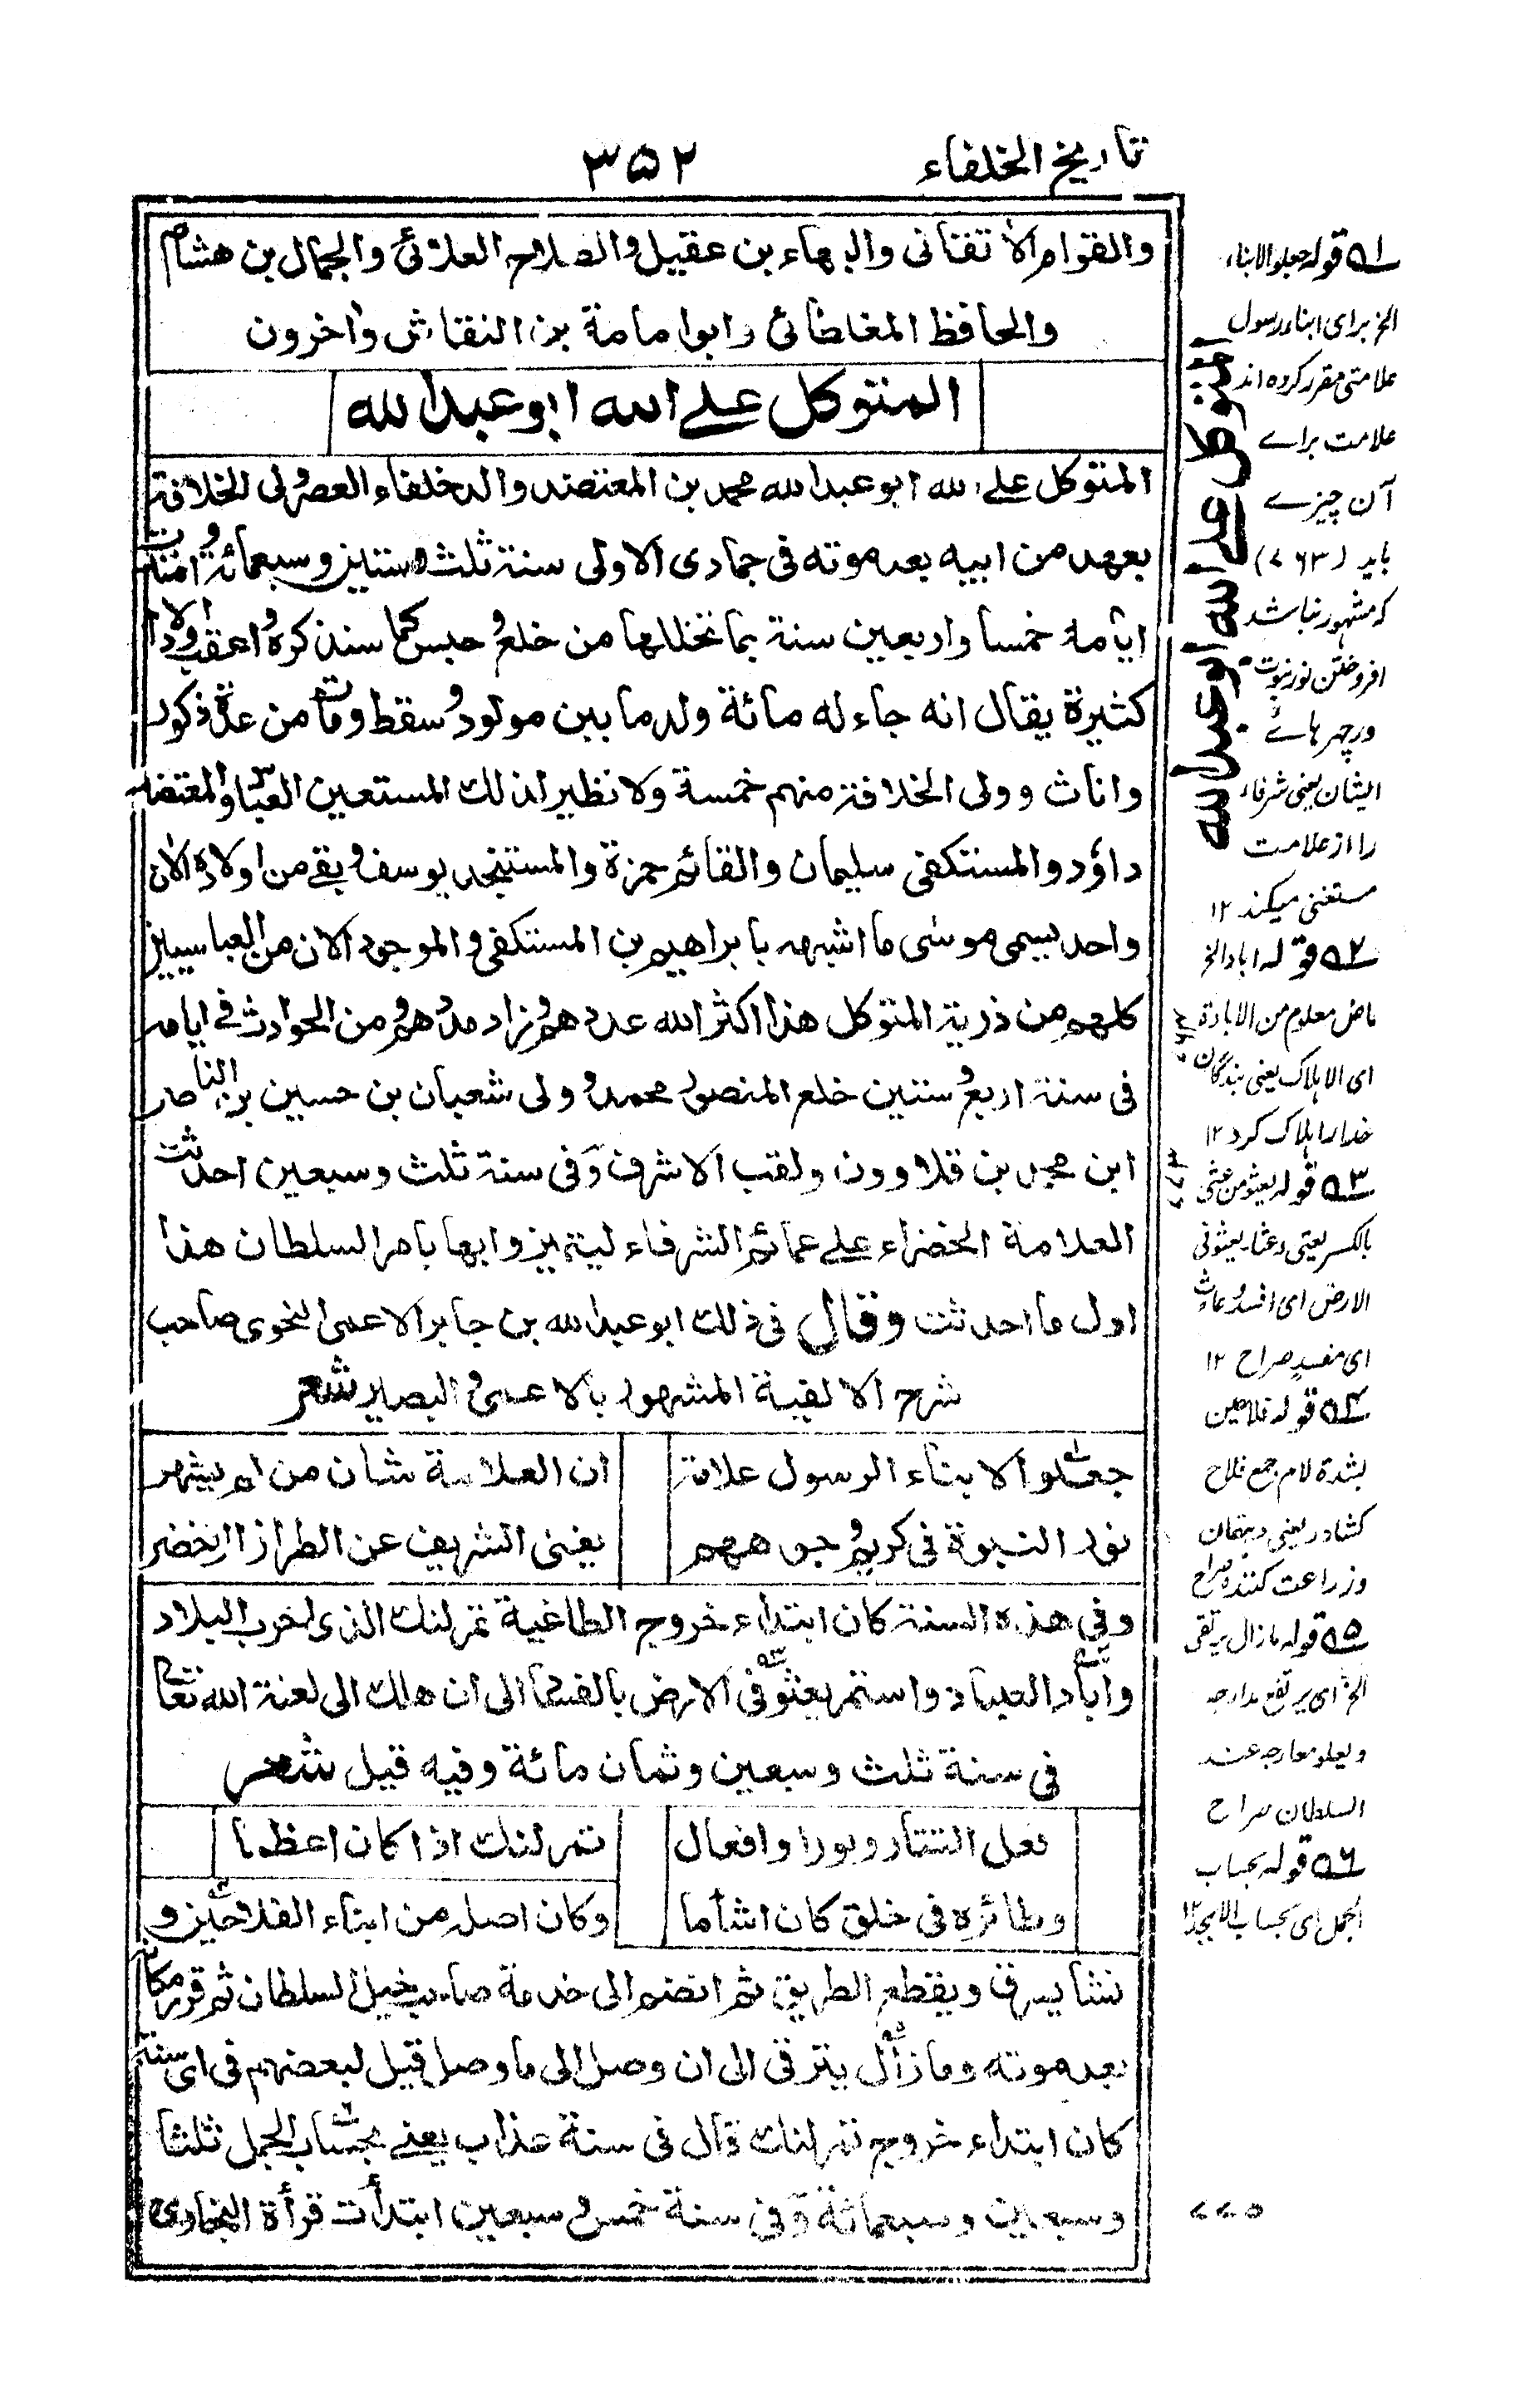 تاريخ الخلفاء
٣٥٢
والقوام الاتقانى والبهاء بن عقيل والصلاح العلائى والجمال بن هشام
والحافظ المغلطائى وابوامامة بن النقاش واخرون
المتوكل على الله ابو عبد الله
المتوكل على الله ابو عبد الله محمد بن المعتضد والد خلفاء العصر ولى الخلافة
بعهد من ابيه بعد موته فى جمادى الاولى سنة ثلث وستين وسبعمائة وامتدت
ايامه خمسا واربعين سنة بما تخللها من خلع وحبس كما سنذكره واعقب اولادا
كثيرة يقال انه جاء له مائة ولد ما بين مولود وسقط ومات من عدة ذكور
واناث وولى الخلافة منهم خمسة ولا نظير لذلك المستعين العباس والمعتضد
داؤد والمستكفى سليمان والقائم حمزة والمستنجد يوسف وبقى من اولاده الان
واحد يسمى موسى ما اشبهه بابراهيم بن المستكفى والموجود الان من العباسيين
كلهم من ذرية المتوكل هذا اكثر الله عددهم وزاد مددهم ومن الحوادث فى ايامه
فى سنة اربع وستين خلع المنصور محمد وولى شعبان بن حسين بن الناصر
ابن محمد بن قلاوون ولقب الاشرف وفى سنة ثلث وسبعين احدثت
العلامة الخضراء على عمائم الشرفاء ليتميزوا بها بامر السلطان هذا
اول ما احدثت وقال فى ذلك ابو عبد الله بن جابر الاعمى النحوى صاحب
شرح الالفية المشهور بالاعمى والبصير شعر
جعلوا لابناء الرسول علامة ان العلامة شان من لم يشهر
نور النبوة فى كريم وجوههم يغنى الشريف عن الطراز الاخضر
وفى هذه السنة كان ابتداء خروج الطاغية تمرلنك الذى اخرب البلاد
واباد العباد واستمر يعثو فى الارض بالفساد الى ان هلك الى لعنة الله تعالى
فى سنة ثلث وسبعين وثمان مائة وفيه قيل شعر
فعل التتار وبورا وافعال تمرلنك اذا كان اعظما
وطائره فى خلق كان اشأما وكان اصله من ابناء الفلاحين و
نشأ يسرق ويقطع الطريق ثم انضم الى خدمة صاحب خيل السلطان ثم قرر مكانه
بعد موته وما زال يترقى الى ان وصل الى ما وصل قيل لبعضهم فى اى سنة
كان ابتداء خروج تمرلنك قال فى سنة عذاب يعنى بحساب الجمل ثلثا
وسبعين وسبعمائة وفى سنة خمس وسبعين ابتدأت قرأة البخارى
المتوكل على الله ابو عبد الله
٥١ قوله جعلوا لابناء
الخ براى ابناء رسول
علامتى مقرر كرده اند
علامت براے
آن چيزے
بايد (٧٦٣)
كه مشهور نباشد
افروختن نور نبوت
در چهرهائے
ايشان يعنى شرفاء
را از علامت
مستغنى ميكند ١٢
٥٢ قوله اباد الخ
ماض معلوم من الابادة
اى الاهلاك يعنى بندگان
خدا را هلاك كرد ١٢
٧٧٣
٥٣ قوله يعثو من عثى
بالكسر يعثى وعثا يعثو فى
الارض اى افسد وعاث
اى مفسد صراح ١٢
٥٤ قوله فلاحين
بشدة لام جمع فلاح
كشاورز يعنى دهقان
وزراعت كننده صراح
٥٥ قوله ما زال يرتقى
الخ اى يرتفع مدارجه
ويعلو معارجه عند
السلطان صراح
٥٦ قوله بحساب
الجمل اى بحساب الابجد ١٢
٧٧٥